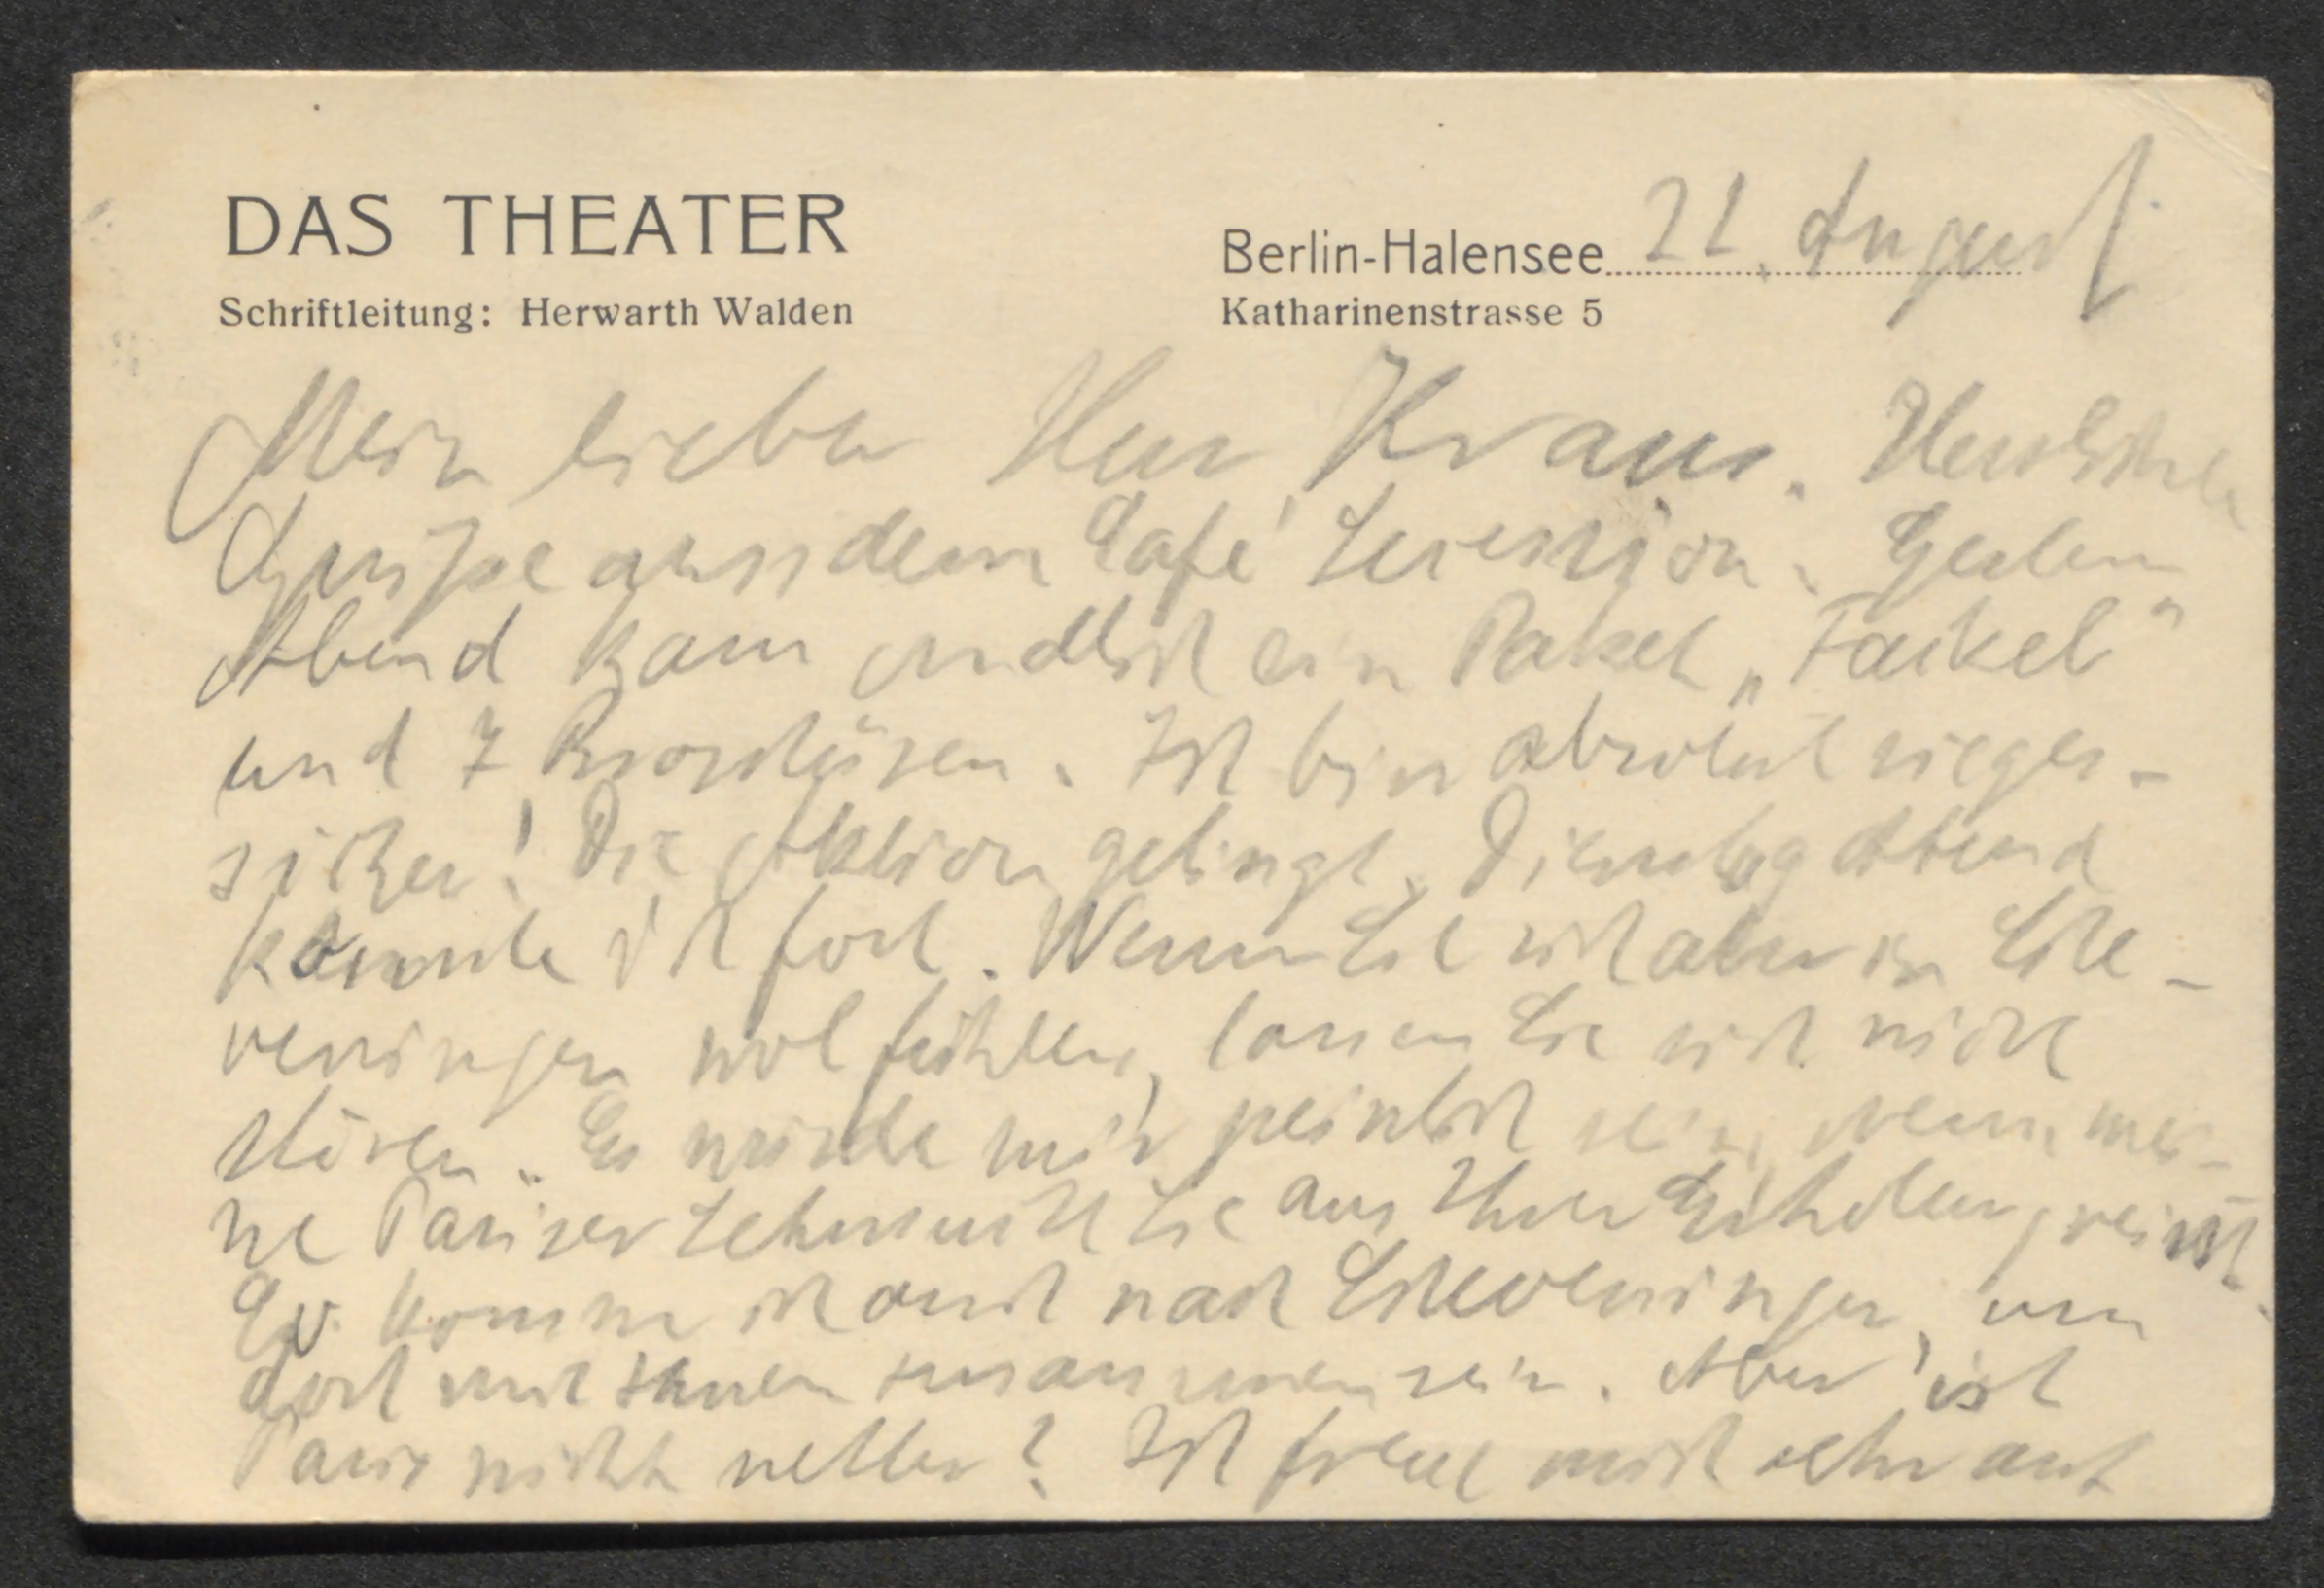 DAS THEATER
Schriftleitung: Herwarth Walden
Berlin-Halensee 21. August
Katharinenstrasse 5
Mein lieber Herr Kraus. Herzlichste
Grüße aus dem Café Secession. Gestern
Abend kam endlich ein Paket „Fackel"
und 7 Broschüren. Ich bin absolut sieges-
sicher! Die Aktion gelingt. Dienstag Abend
könnte ich fort. Wenn Sie sich aber in Sche-
veningen wol fühlen, lassen Sie sich nicht
stören. Es würde mir peinlich sein, wenn mei-
ne Pariser Sehnsucht Sie aus Ihrer Erholung reisst.
Ev. komme ich auch nach Scheveningen, um
dort mit Ihnen zusammen sein. Aber ist
Paris nicht netter? Ich freue mich sehr auf